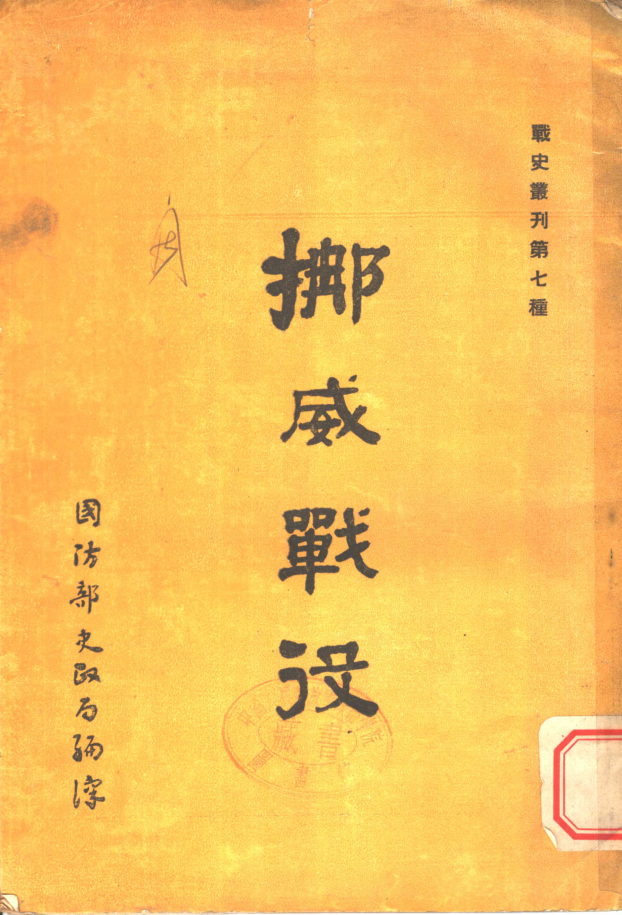 戰史叢刊第七種
挪威戰役
國防部史政局編譯
藏書